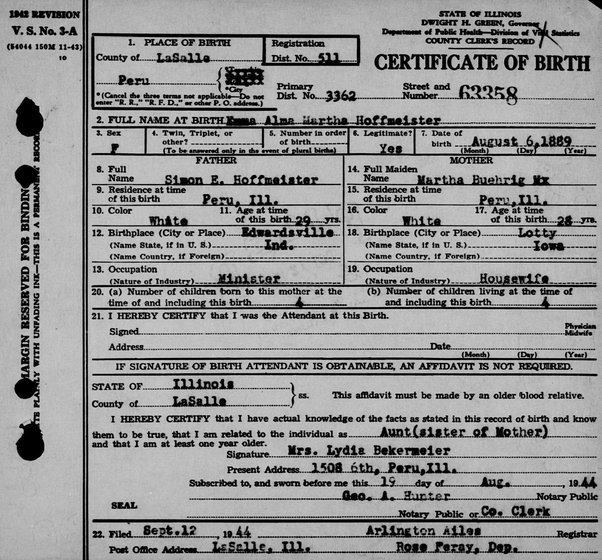 1942 REVISION
V. S. No. 3-A
(54044 150M 11-43)
10
STATE OF ILLINOIS
DWIGHT H. GREEN, Governor
Department of Public Health—Division of Vital Statistics
COUNTY CLERK'S RECORD
CERTIFICATE OF BIRTH
1. PLACE OF BIRTH
County of LaSalle
Registration
Dist. No. 511
Peru
*City
*(Cancel the three terms not applicable—Do not
enter "R. R.," "R. F. D.," or other P. O. address.)
Primary
Dist. No. 3362
Street and
Number 63358
2. FULL NAME AT BIRTH Emma Alma Martha Hoffmeister
3. Sex F
4. Twin, Triplet, or other?
5. Number in order of birth
(To be answered only in the event of plural births)
6. Legitimate? Yes
7. Date of birth August 6, 1889
(Month) (Day) (Year)
FATHER
8. Full Name Simon E. Hoffmeister
9. Residence at time of this birth Peru, Ill.
10. Color White
11. Age at time of this birth 29 yrs.
12. Birthplace (City or Place) Edwardsville
(Name State, if in U. S.) Ind.
(Name Country, if Foreign)
13. Occupation
(Nature of Industry) Minister
MOTHER
14. Full Maiden Name Martha Buehrig
15. Residence at time of this birth Peru, Ill.
16. Color White
17. Age at time of this birth 28 yrs.
18. Birthplace (City or Place) Lotty
(Name State, if in U. S.) Iowa
(Name Country, if Foreign)
19. Occupation
(Nature of Industry) Housewife
20. (a) Number of children born to this mother at the time of and including this birth 4
(b) Number of children living at the time of and including this birth 4
21. I HEREBY CERTIFY that I was the Attendant at this Birth.
Signed
Physician
Midwife
Address
Date
(Month) (Day) (Year)
IF SIGNATURE OF BIRTH ATTENDANT IS OBTAINABLE, AN AFFIDAVIT IS NOT REQUIRED.
STATE OF Illinois
County of LaSalle
ss.
This affidavit must be made by an older blood relative.
I HEREBY CERTIFY that I have actual knowledge of the facts as stated in this record of birth and know
them to be true, that I am related to the individual as Aunt(sister of Mother)
and that I am at least one year older.
Signature Mrs. Lydia Bekermeier
Present Address 1508 6th, Peru, Ill.
Subscribed to, and sworn before me this 19 day of Aug. , 1944
Geo. A. Hunter Notary Public
SEAL
Notary Public or Co. Clerk
22. Filed Sept. 12 , 1944 Arlington Ailes Registrar
Post Office Address LaSalle, Ill. Rose Feray, Dep.
MARGIN RESERVED FOR BINDING
WRITE PLAINLY WITH UNFADING INK—THIS IS A PERMANENT RECORD